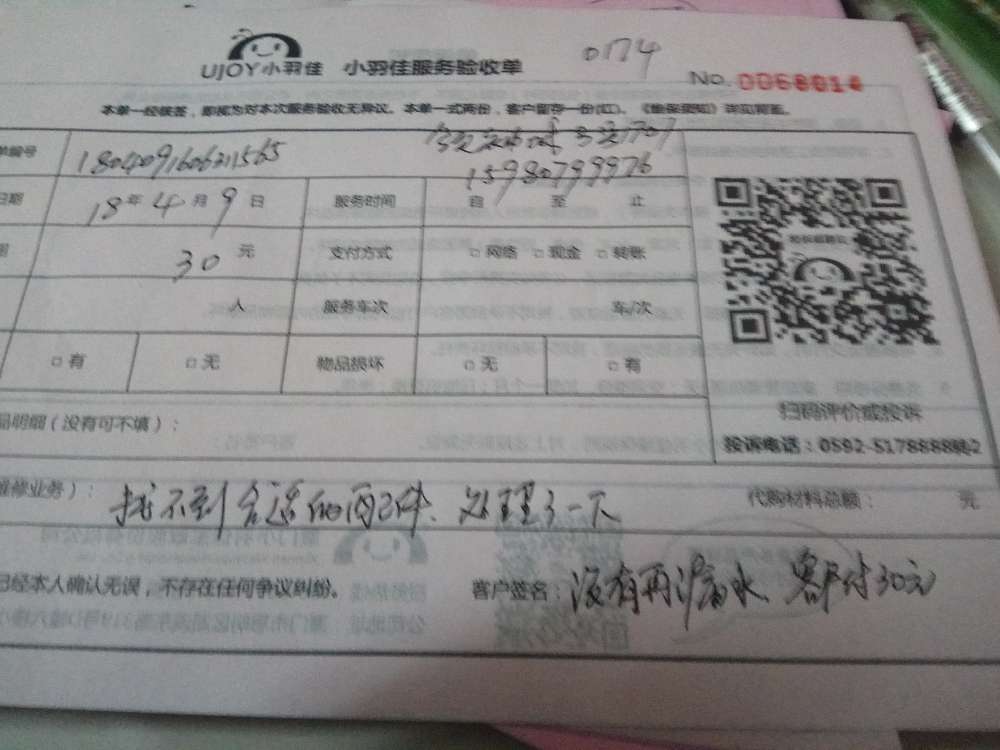 UJOY小羽佳 小羽佳服务验收单 0174
No. 0068014
本单一经核签，即视为对本次服务验收无异议。本单一式两份，客户留存一份(红)。《售后须知》详见背面。
单编号 1804091606211565
15980799976
日期 18年4月9日 服务时间 自 至 止
30元 支付方式 □网络 □现金 □转账
人 服务车次 车/次
□有 □无 物品损坏 □无 □有
扫码评价或投诉
品明细（没有可不填）：
投诉电话：0592-5178888转2
维修业务）： 找不到合适的配件、处理了一下 代购材料总额： 元
已经本人确认无误，不存在任何争议纠纷。 客户签名：没有再漏水、客户付30元